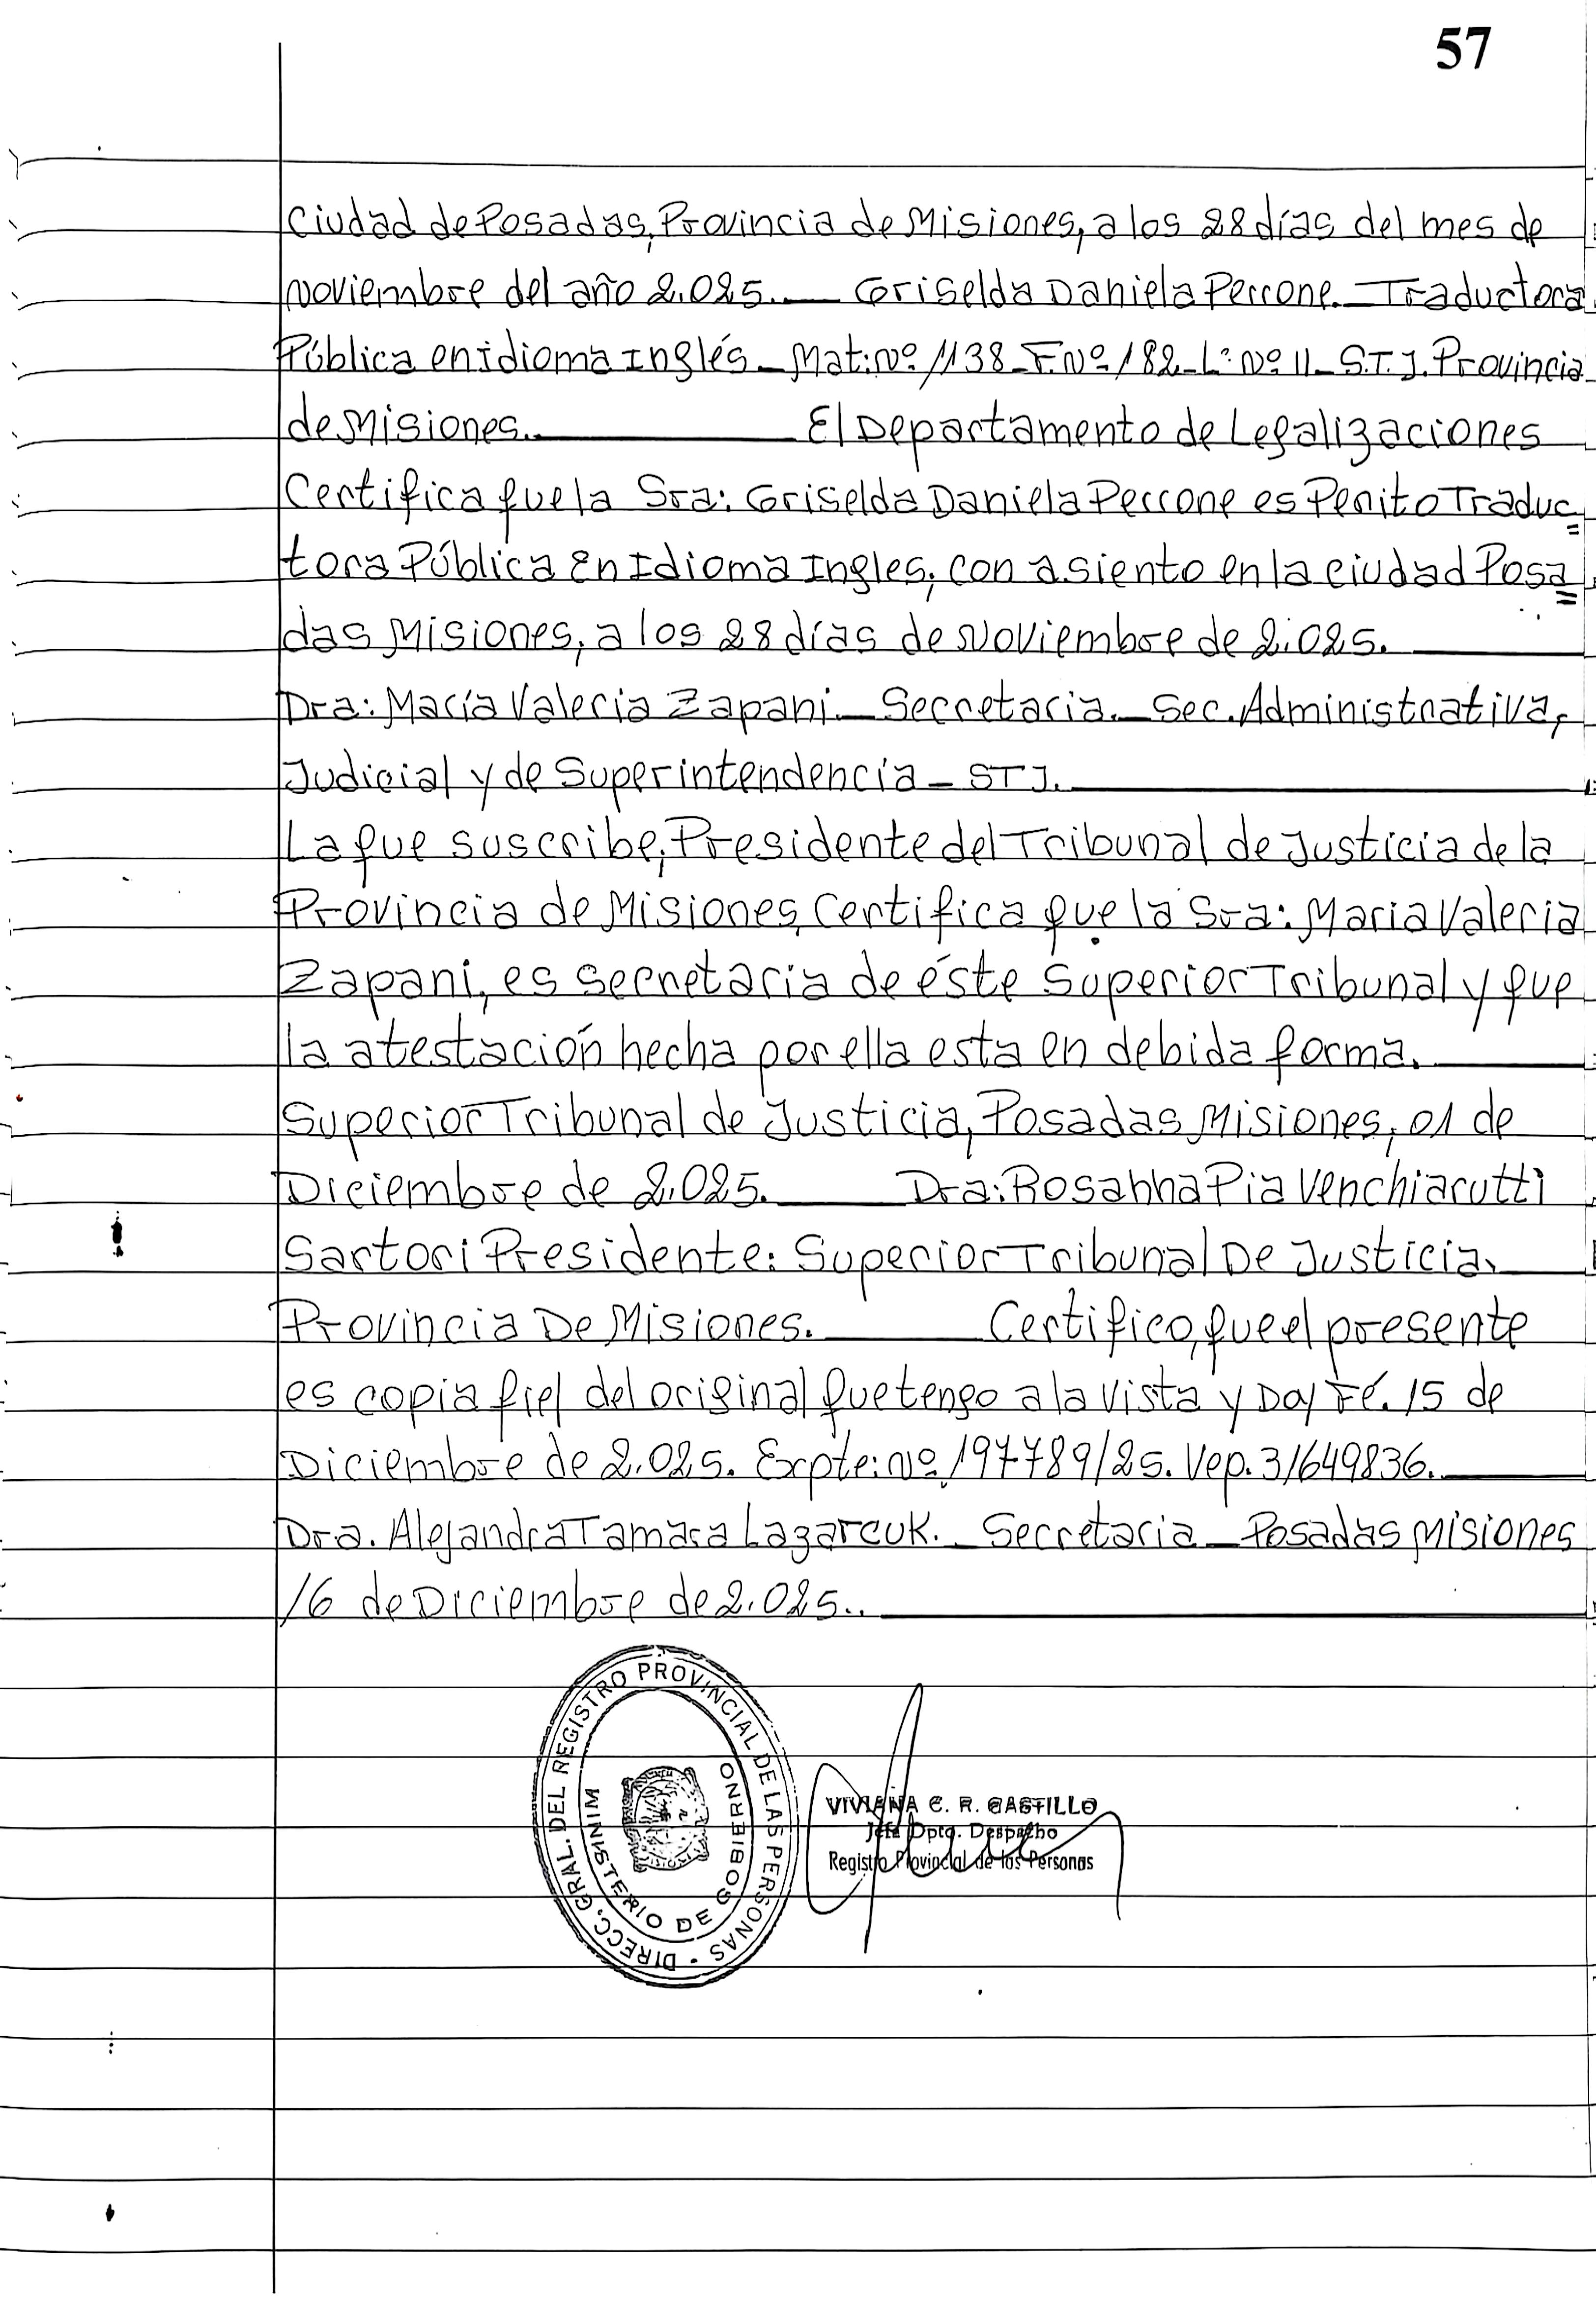 57
Ciudad de Posadas, Provincia de Misiones, a los 28 días del mes de
Noviembre del año 2.025.__ Griselda Daniela Perrone._Traductora
Pública en idioma Inglés_Mat: Nº 1138_F.Nº 182_Lº Nº II_S.T.J. Provincia
de Misiones.______ El Departamento de Legalizaciones
Certifica que la Sra: Griselda Daniela Perrone es Perito Traduc=
tora Pública En Idioma Ingles, con asiento en la ciudad Posa=
das Misiones, a los 28 días de Noviembre de 2.025.____
Dra: María Valeria Zapani._Secretaria._Sec. Administrativa,
Judicial y de Superintendencia_STJ.______
La que suscribe, Presidente del Tribunal de Justicia de la
Provincia de Misiones, Certifica que la Sra: Maria Valeria
Zapani, es secretaria de éste Superior Tribunal y que
la atestación hecha por ella esta en debida forma.____
Superior Tribunal de Justicia, Posadas Misiones, 01 de
Diciembre de 2.025.____ Dra: Rosanna Pia Venchiarutti
Sartori Presidente: Superior Tribunal De Justicia.__
Provincia De Misiones.____ Certifico, que el presente
es copia fiel del original que tengo a la vista y Doy Fé. 15 de
Diciembre de 2.025. Expte: Nº 197789/25. Vep. 31649836.____
Dra. Alejandra Tamara Lazarcuk._Secretaria_Posadas Misiones
16 de Diciembre de 2.025..______
DIRECC. GRAL. DEL REGISTRO PROVINCIAL DE LAS PERSONAS ·
MINISTERIO DE GOBIERNO
VIVIANA C. R. CASTILLO
Jefa Dpto. Despacho
Registro Provincial de las Personas